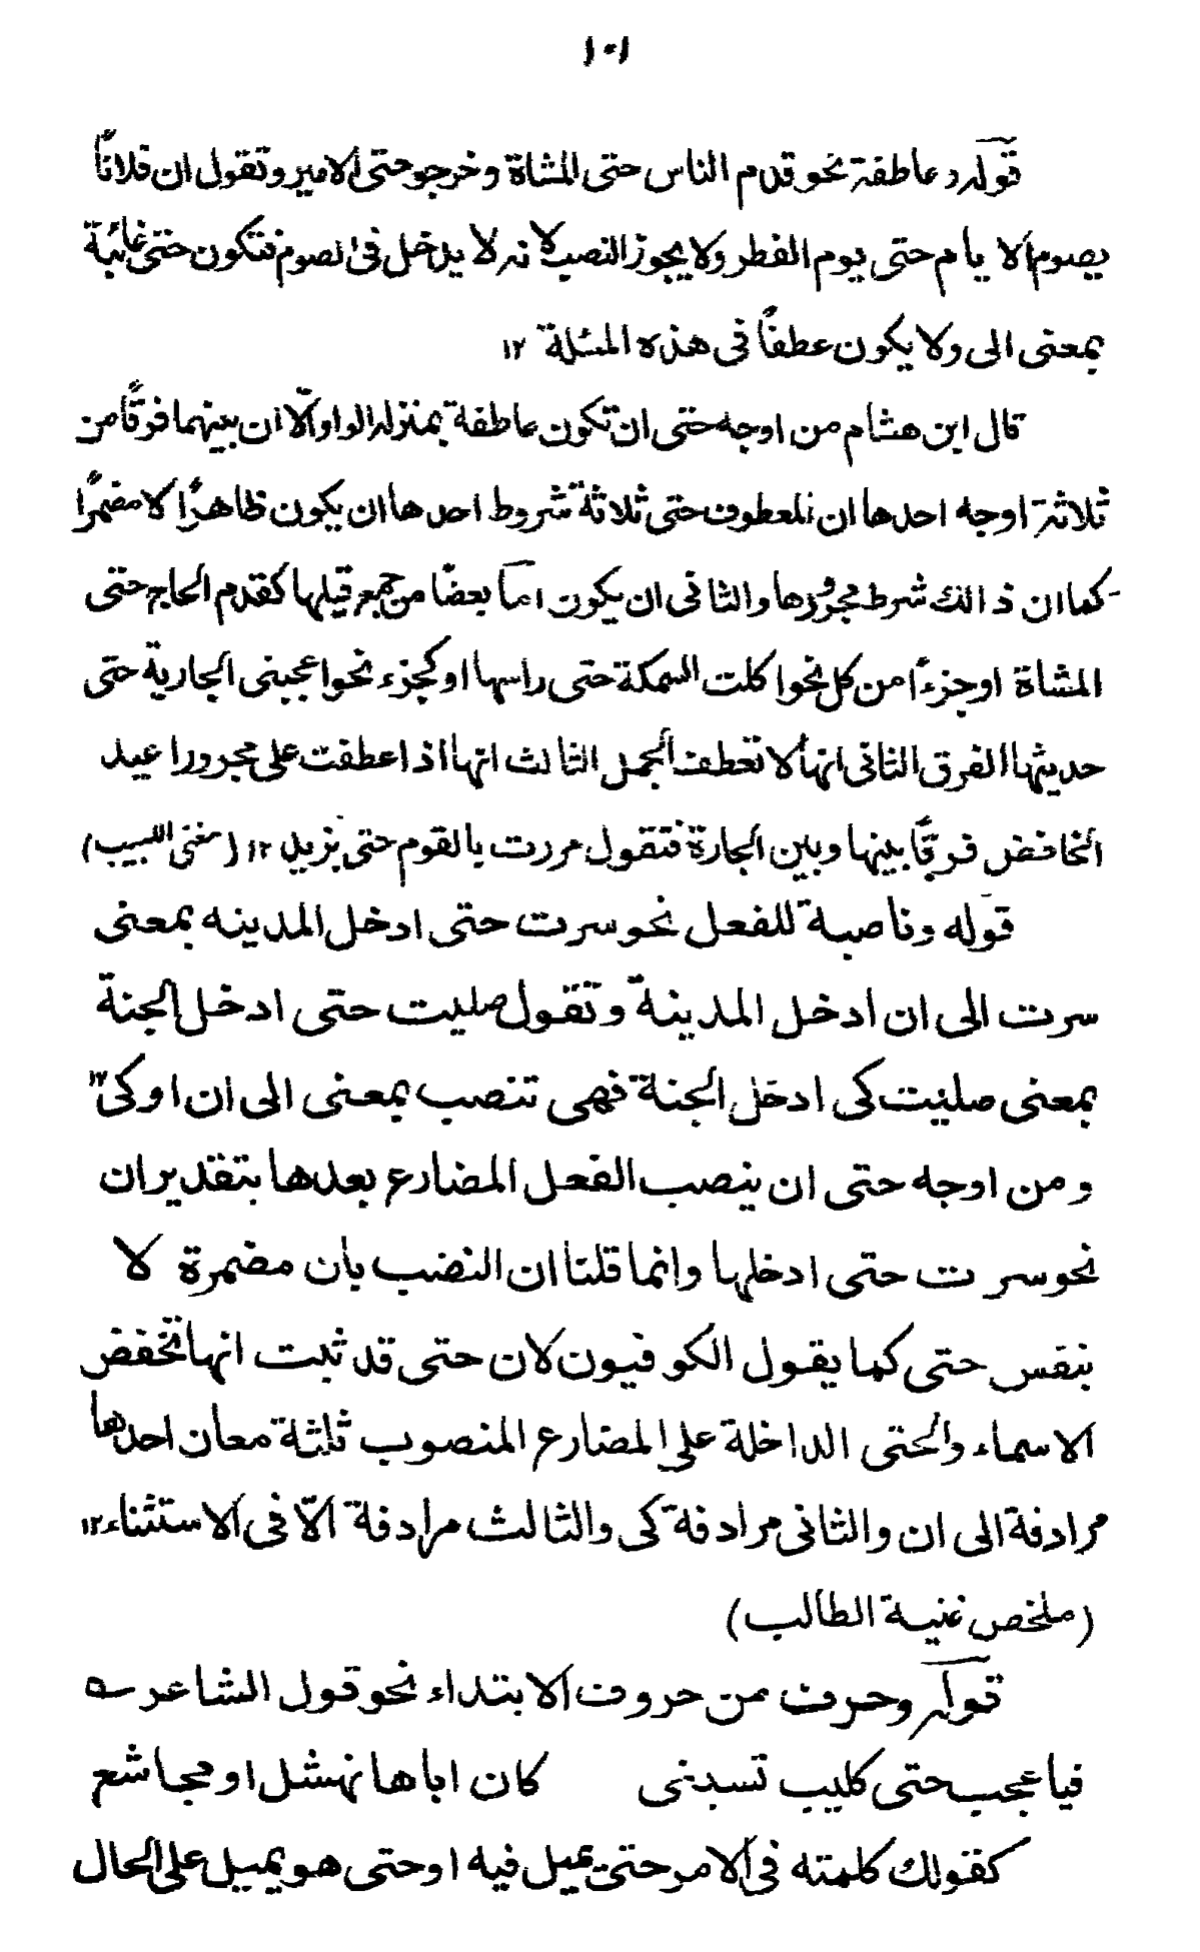 ١٠١
قوله وعاطفة نحو قدم الناس حتى المشاة وخرجو حتى الامير وتقول ان فلاناً
يصوم الايام حتى يوم الفطر ولا يجوز النصب لانه لا يدخل فى الصوم فتكون حتى غائبة
بمعنى الى ولا يكون عطفاً فى هذه المسئلة ١٢
قال ابن هشام من اوجه حتى ان تكون عاطفة بمنزله الواو الّا ان بينهما فرقاً من
ثلاثة اوجه احدها ان لمعطوف حتى ثلاثة شروط احدها ان يكون ظاهرًا لا مضمرًا
كما ان ذالك شرط مجرورها والثانى ان يكون اما بعضًا من جمع قبلها كقدم الحاج حتى
المشاة او جزءًا من كل نحو اكلت السمكة حتى راسها او كجزء نحو اعجبنى الجارية حتى
حديثها الفرق الثانى انها لا تعطف الجمل الثالث انها اذا عطفت على مجرور اعيد
الخافض فرقًا بينها وبين الجارة فتقول مررت بالقوم حتى بزيد ١٢ (مغنى اللبيب)
قوله وناصبة للفعل نحو سرت حتى ادخل المدينه بمعنى
سرت الى ان ادخل المدينة وتقول صليت حتى ادخل الجنة
بمعنى صليت كى ادخل الجنة فهى تنصب بمعنى الى ان او كى ١٢
ومن اوجه حتى ان ينصب الفعل المضارع بعدها بتقدير ان
نحو سرت حتى ادخلها وانما قلنا ان النصب بان مضمرة لا
بنفس حتى كما يقول الكوفيون لان حتى قد ثبت انها تخفض
الاسماء والحتى الداخلة على المضارع المنصوب ثلثة معان احدها
مرادفة الى ان والثانى مرادفة كى والثالث مرادفة الّا فى الاستثناء ١٢
(ملخص غنية الطالب)
قوله وحرف من حروف الابتداء نحو قول الشاعر ؎
فيا عجب حتى كليب تسبنى كان اباها نهشل او مجاشع
كقولك كلمته فى الامر حتى يميل فيه او حتى هو يميل على الحال